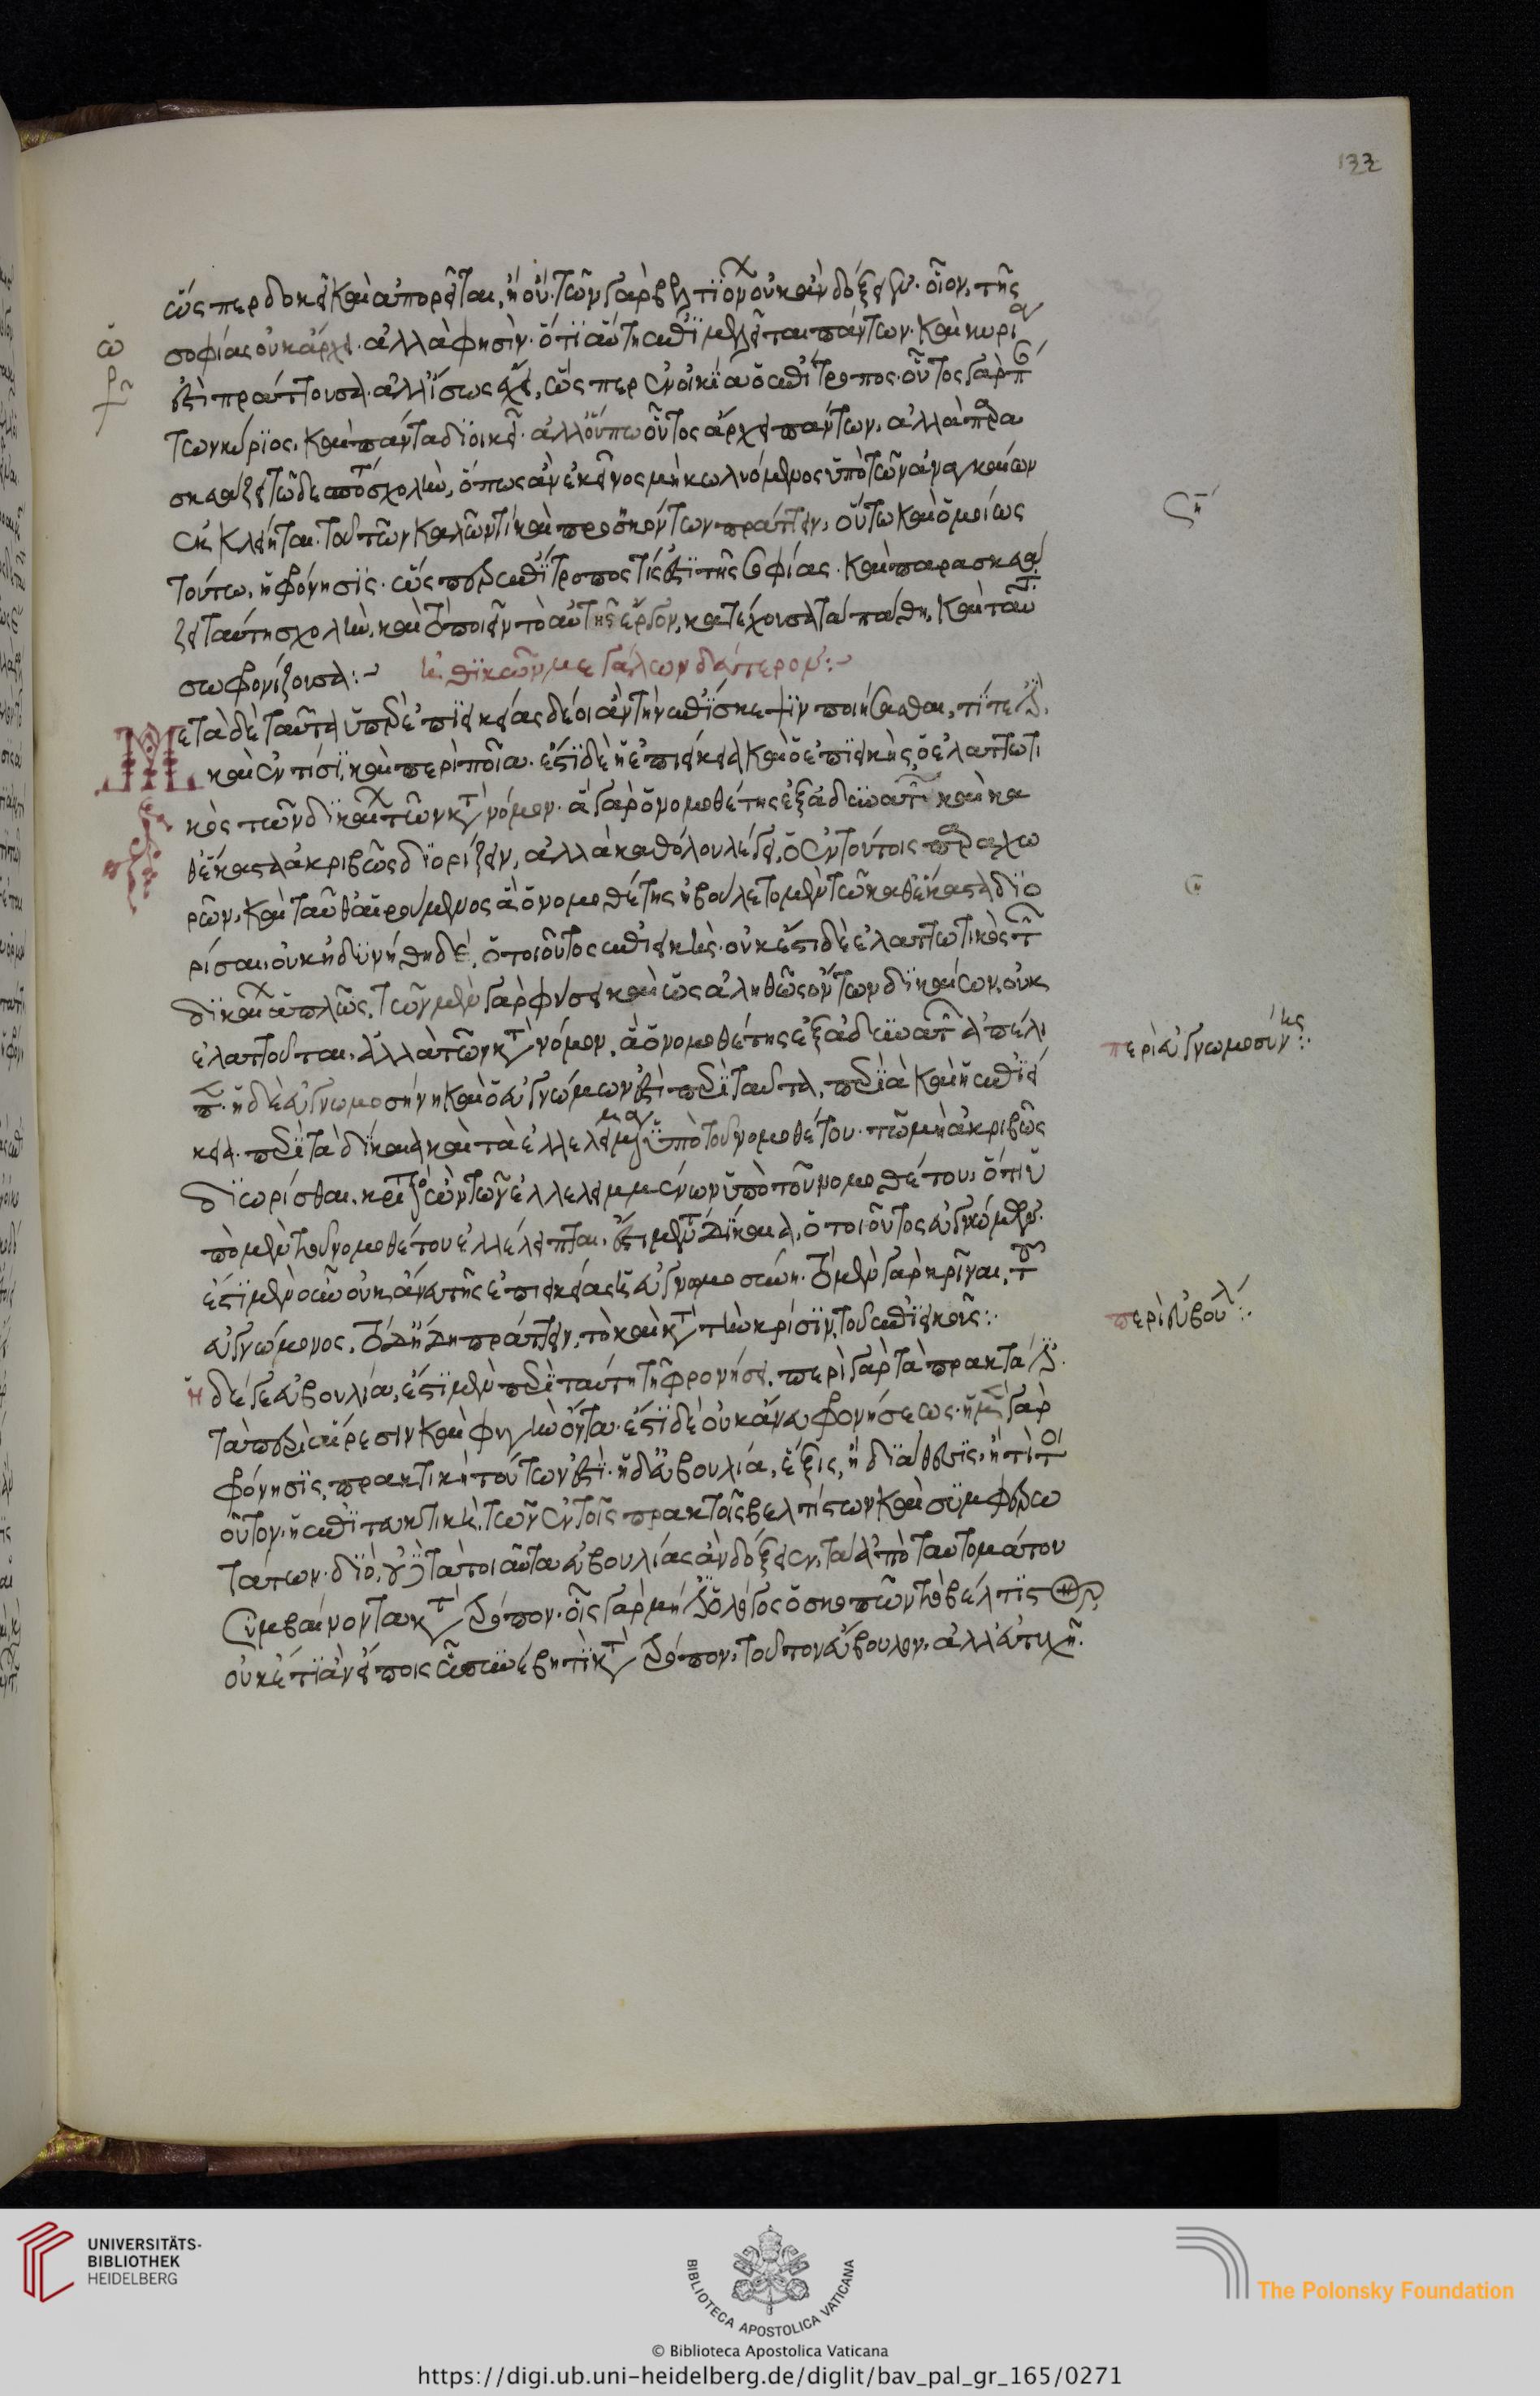 ὥσπερ δοκεῖ καὶ ἀπορεῖται, ἢ οὔ. τῶν γὰρ βελτιόνων οὐκ ἂν δόξειεν. οἷον, τῆς
ὡρ
σοφίας οὐκ ἄρχει. ἀλλὰ φησὶν. ὅτι αὕτη ἐπιμελεῖται πάντων. καὶ κυρία
ἐστὶ πράττουσα. ἀλλ' ἴσως ἔχει, ὥσπερ ἐν οἰκία ὁ ἐπίτροπος. οὗτος γὰρ πάν
των κύριος. καὶ πάντα διοικεῖ. ἀλλ' οὔπω οὗτος ἄρχει πάντων, ἀλλὰ παρα
σκευάζει τῶ δεσπότη σχολὴν, ὅπως ἂν ἐκεῖνος μὴ κωλυόμενος ὑπὸ τῶν ἀναγκαίων
ἐκκλείηται. τοῦ τῶν καλῶν τί καὶ προσηκόντων πράττειν, οὕτω καὶ ὁμοίως
τούτω, ἡ φρόνησις. ὥσπερ ἐπίτροπος τίς ἐστι τῆς σοφίας. καὶ παρασκευά
ζει ταύτη σχολὴν, καὶ τὸ ποιεῖν τὸ αὐτῆς ἔργον, κατέχουσα τὰ πάθη, καὶ ταῦτα
σωφρονίζουσα:~ ἠθικῶν μεγάλων δεύτερον:~
Μετὰ δὲ ταῦτα ὑπὲρ ἐπιεικείας δέοι ἂν τὴν ἐπίσκεψιν ποιήσασθαι, τί τε ἐστὶ.
καὶ ἐν τίσι, καὶ περὶ ποῖα. ἔστι δὲ ἡ ἐπιείκεια καὶ ὁ ἐπιεικὴς, ὁ ἐλαττωτι
κὸς τῶν δικαίων τῶν κατὰ νόμον. ἃ γὰρ ὁ νομοθέτης ἐξαδυνατεῖ καὶ κα
θέκαστα ἀκριβῶς διορίζειν, ἀλλὰ καθόλου λέγει, ὁ ἐν τούτοις παραχω
ρῶν, καὶ ταῦθ' αἱρούμενος ἃ ὁ νομοθέτης ἠβούλετο μὲν τῶ καθέκαστα διο
ρίσαι, οὐκ ἠδυνήθη δὲ, ὁ τοιοῦτος ἐπιεικὴς. οὐκ ἔστι δὲ ἐλαττωτικὸς τῶν
δικαίων ἁπλῶς, τῶν μὲν γὰρ φύσει καὶ ὡς ἀληθῶς ὄντων δικαίων, οὐκ
ἐλαττοῦται. ἀλλὰ τῶν κατὰ νόμον, ἃ ὁ νομοθέτης ἐξαδυνατῶν ἀπέλι
πεν. ἡ δὲ εὐγνωμοσύνη καὶ ὁ εὐγνώμων ἐστὶ περὶ ταῦτα, περὶ ἃ καὶ ἡ ἐπιεί
κεια. περὶ τὰ δίκαια καὶ τὰ ἐλλελειμμένα ὑπὸ τοῦ νομοθέτου. τῶ μὴ ἀκριβῶς
διωρίσθαι. κριτικὸς ὢν τῶν ἐλλελειμμένων ὑπὸ τοῦ νομοθέτου, ὅτι ὑ
πὸ μὲν τοῦ νομοθέτου ἐλλέλειπται. ἔστι μέντοι δίκαια, ὁ τοιοῦτος εὐγνώμων.
ἔστι μὲν οὖν οὐκ ἄνευ τῆς ἐπιεικείας ἡ εὐγνωμοσύνη. τὸ μὲν γὰρ κρῖναι, τοῦ
εὐγνώμονος. τὸ δὲ δὴ πράττειν, τὸ καὶ κατὰ τὴν κρίσιν, τοῦ ἐπιεικοῦς:·
ἡ δέ γε εὐβουλία, ἔστι μὲν περὶ ταύτη τῆ φρονήσει. περὶ γὰρ τὰ πρακτά ἐστι.
τὰ περὶ αἵρεσιν καὶ φυγὴν ὄντα. ἔστι δὲ οὐκ ἄνευ φρονήσεως. ἡ μὲν γὰρ
φρόνησις, πρακτικὴ τούτων ἐστὶ. ἡ δ' εὐβουλία, ἕξις, ἢ διάθεσις, ἤ τι τοι
οῦτον. ἡ ἐπιτευκτικὴ, τῶν ἐν τοῖς πρακτοῖς βελτίστων καὶ συμφορω
τάτων. διὸ, οὐδὲ τὰ τοιαῦτα εὐβουλίας ἂν δόξειεν, τὰ ἀπὸ ταυτομάτου
συμβαίνοντα κατὰ τρόπον. οἷς γὰρ μή ἐστι ὁ λόγος ὁ σκοπῶν τὸ βέλτιστον,
οὐκέτι ἂν εἴποις ὧ συνέβη τι κατὰ τρόπον, τοῦτον εὔβουλον, ἀλλ' εὐτυχῆ.
περὶ εὐγνωμοσύνης:·
περὶ εὐβουλί:·
UNIVERSITÄTS-
BIBLIOTHEK
HEIDELBERG
BIBLIOTECA APOSTOLICA VATICANA
The Polonsky Foundation
© Biblioteca Apostolica Vaticana
https://digi.ub.uni-heidelberg.de/diglit/bav_pal_gr_165/0271